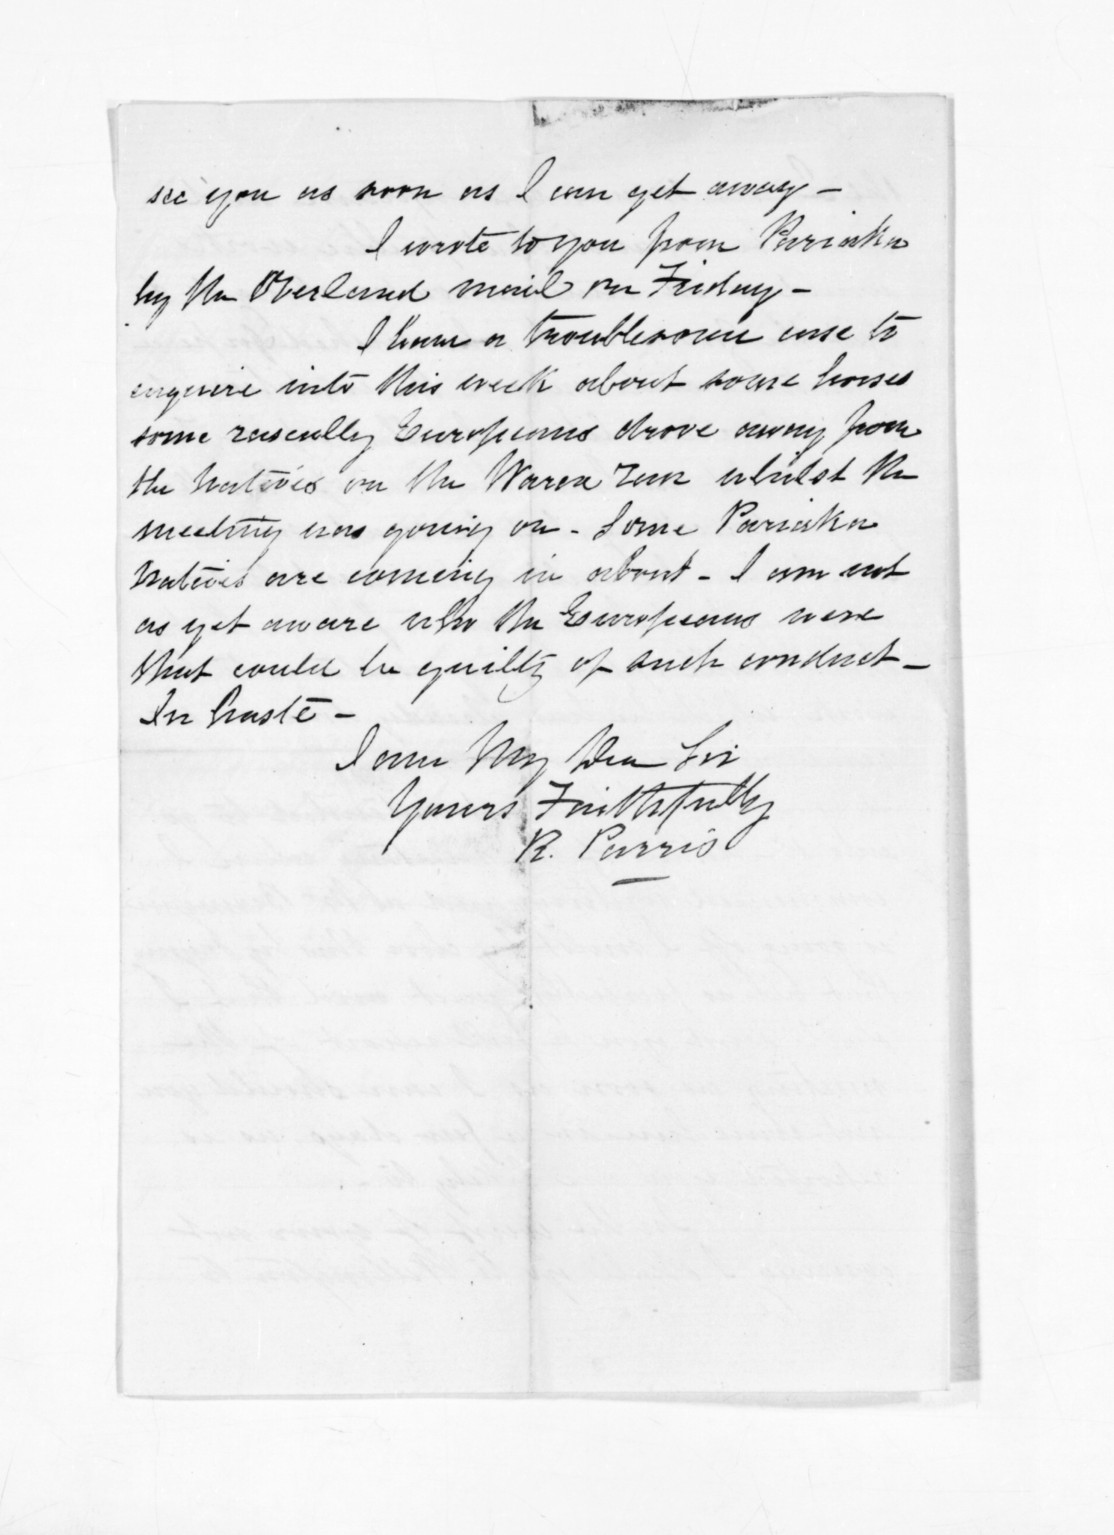 see you as soon as I can get away -
I wrote to you from Pariaka
by the Overland mail on Friday -
I have a troublesome case to
enquire into this week about some horses
some rascally Europeans drove away from
the natives on the Warea run whilst the
meeting was going on - Some Pariaka
Natives are coming in about - I am not
as yet aware who the Europeans were
that could be guilty of such conduct -
In haste -
I am My Dear Sir
Yours Faithfully
R. Parris